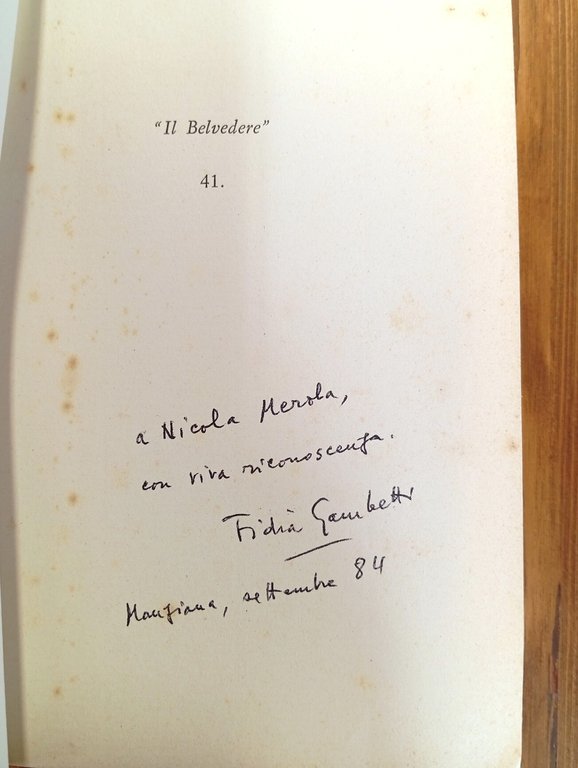 “Il Belvedere”
41.
a Nicola Merola,
con viva riconoscenza.
Fidia Gambetti
Manziana, settembre 84